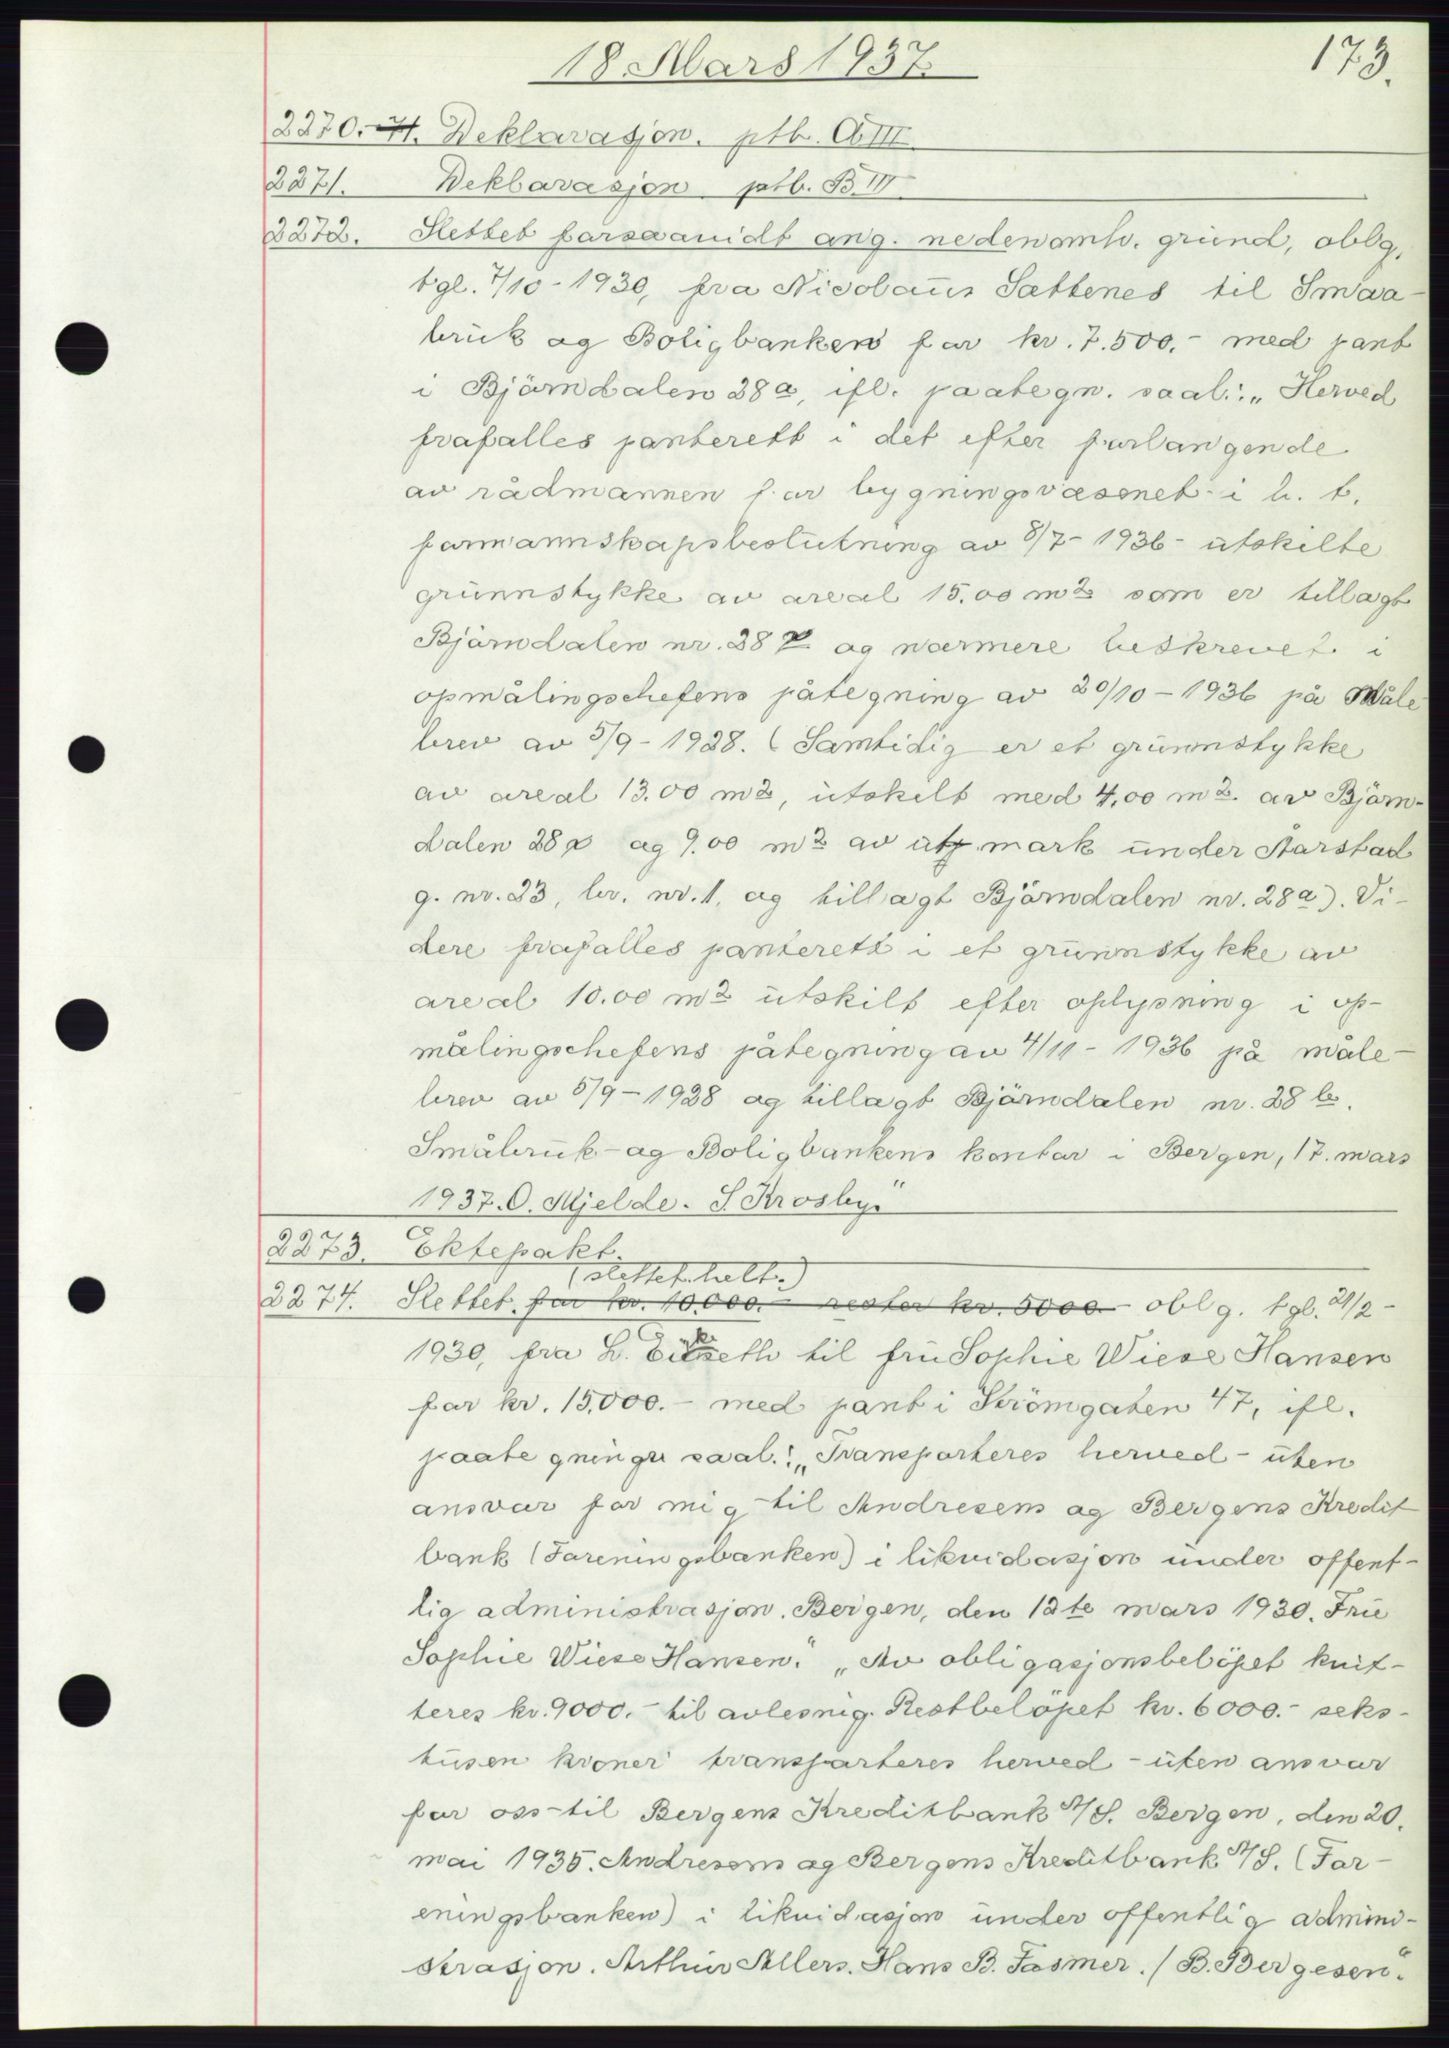 18 Mars 1937.
173.
2270. 71. Deklarasjon. ptb. A III.
2271. Deklarasjon. ptb. B. III.
2272. Slettet forsaavidt ang. nedenomh. grund, oblg,
tgl. 7/10 - 1930, fra Nicolaus Sættenes til Smaa-
bruk og Boligbanken for kr. 7.500.- med pant
i Björndalen 28 a, ifl. paategn. saal.: „Herved
frafalles panterett i det efter forlangende
av rådmannen for bygningsvæsenet i h. t.
formannskapsbeslutning av 8/7 - 1936 - utskilte
grunnstykke av areal 15.00 m2 som er tillagt
Björndalen nr. 28 og nærmere beskrevet i
opmålingschefens påtegning av 20/10 - 1936 på Måle
brev av 5/9 - 1928. (Samtidig er et grunnstykke
av areal 13.00 m2, utskilt med 4,00 m2. av Björn-
dalen 28 og 9.00 m2 av utmark under Aarstad
g. nr. 23, br. nr. 1, og tillagt Björndalen nr. 28 a). Vi-
dere frafalles panterett i et grunnstykke av
areal 10.00 m2 utskilt efter oplysning i op-
målingschefens påtegning av 4/11 - 1936 på måle-
brev av 5/9 - 1928 og tillagt Björndalen nr. 28 b.
Småbruk- og Boligbankens kontor i Bergen, 17. mars
1937. O. Mjelde. S. Krosby."
2273. Ektepakt.
(slettet helt.)
2274. Slettet for kr. 10.000.- rester kr. 5000.- oblg. tgl. 21/2 -
1930, fra L. til fru Sophie Wiese Hansen
for kr. 15.000.- med pant i Strömgaten 47, ifl.
paategninger saal.: „Transporteres herved - uten
ansvar for mig - til Andresens og Bergens Kredit
bank (Foreningsbanken) i likvidasjon under offent-
lig administrasjon. Bergen, den 12te mars 1930. Fru
Sophie Wiese Hansen." „Av obligasjonsbelöpet kvit-
teres kr. 9000.- til avlesnig. Restbelöpet kr. 6000.- seks-
tusen kroner transporteres herved - uten ansvar
for oss - til Bergens Kreditbank A/S. Bergen, den 20.
mai 1935. Andresens og Bergens Kreditbank A/S. (For-
eningsbanken) i likvidasjon under offentlig admini-
strasjon. Arthur Allers. Hans B. Fasmer. / B. Bergesen".